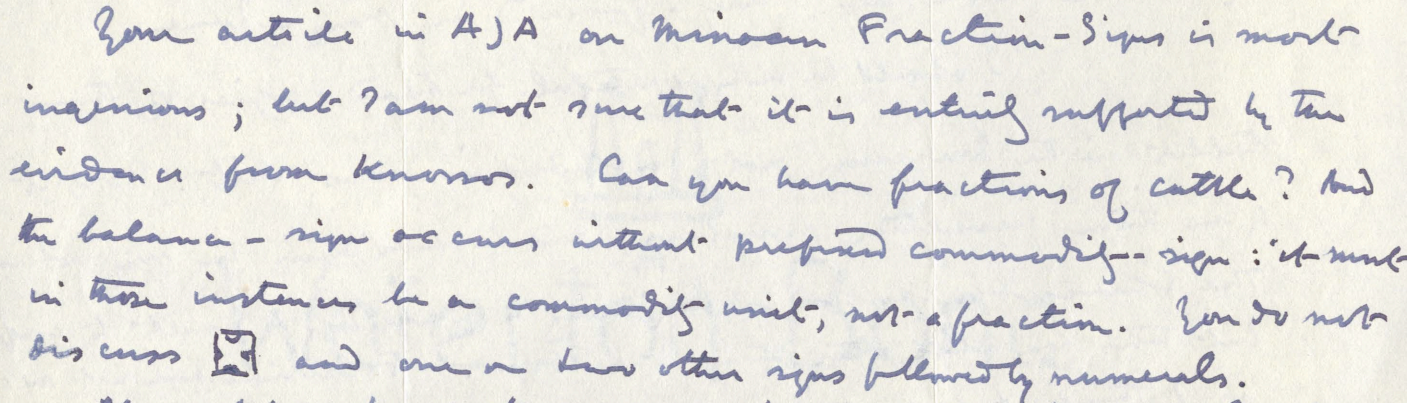 Your article in AJA on Minoan Fraction-Signs is most
ingenious; but I am not sure that it is entirely supported by the
evidence from Knossos. Can you have fractions of cattle? And
the balance-sign occurs without prefixed commodity-sign: it must
in those instances be a commodity unit, not a fraction. You do not
discuss and one or two other signs followed by numerals.